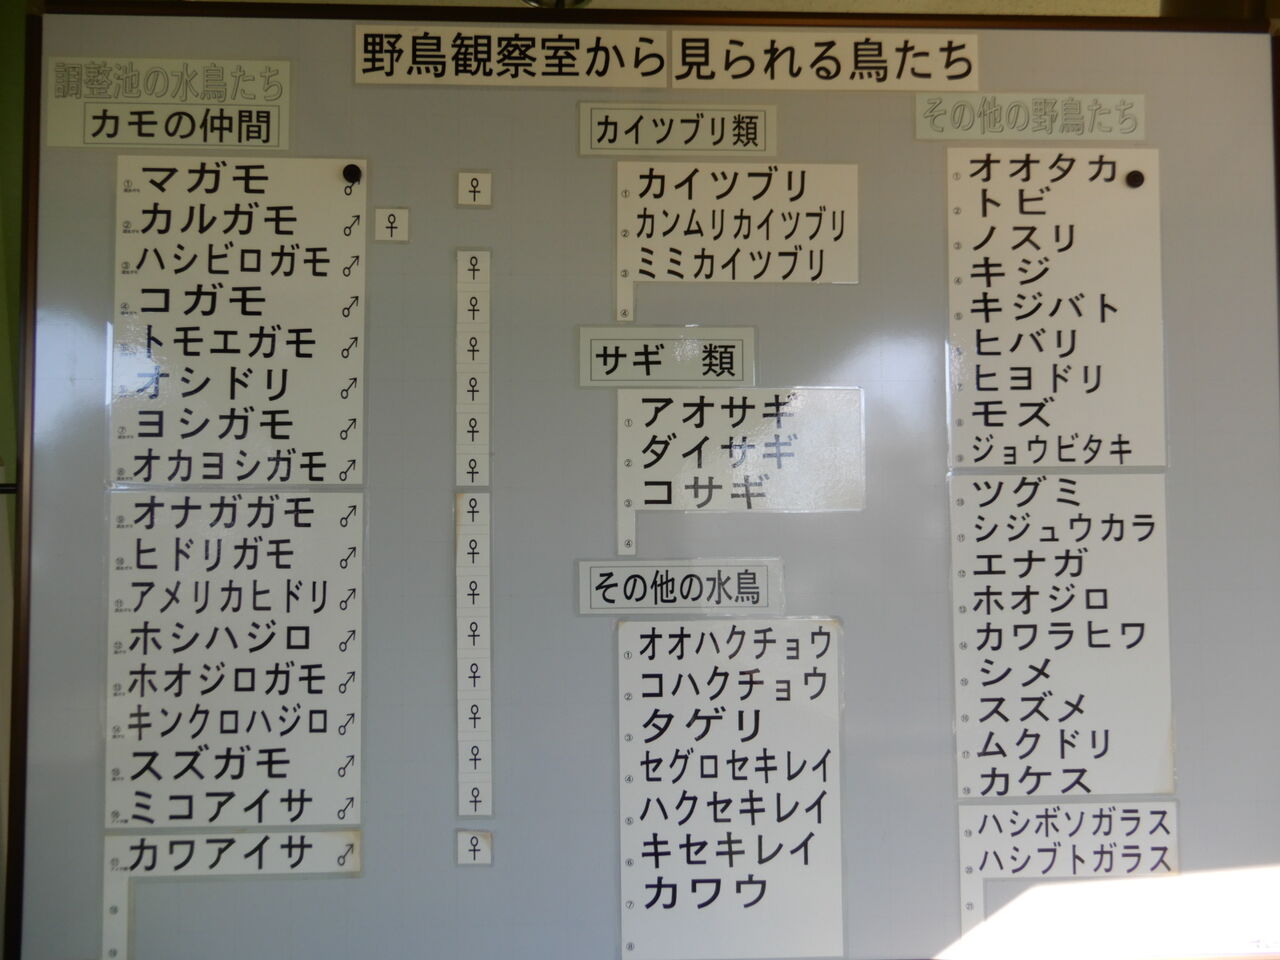 野鳥観察室から見られる鳥たち
調整池の水鳥たち
カモの仲間
①マガモ ♂ ♀
②カルガモ ♂ ♀
③ハシビロガモ ♂ ♀
④コガモ ♂ ♀
トモエガモ ♂ ♀
オシドリ ♂ ♀
⑦ヨシガモ ♂ ♀
⑧オカヨシガモ ♂ ♀
⑨オナガガモ ♂ ♀
⑩ヒドリガモ ♂ ♀
⑪アメリカヒドリ ♂ ♀
⑫ホシハジロ ♂ ♀
⑬ホオジロガモ ♂ ♀
⑭キンクロハジロ ♂ ♀
⑮スズガモ ♂ ♀
⑯ミコアイサ ♂ ♀
⑰カワアイサ ♂ ♀
⑱
⑲
カイツブリ類
①カイツブリ
②カンムリカイツブリ
③ミミカイツブリ
④
サギ 類
①アオサギ
②ダイサギ
③コサギ
④
その他の水鳥
①オオハクチョウ
②コハクチョウ
③タゲリ
④セグロセキレイ
⑤ハクセキレイ
⑥キセキレイ
⑦カワウ
⑧
その他の野鳥たち
①オオタカ
②トビ
③ノスリ
④キジ
⑤キジバト
ヒバリ
⑦ヒヨドリ
⑧モズ
⑨ジョウビタキ
⑩ツグミ
⑪シジュウカラ
⑫エナガ
⑬ホオジロ
⑭カワラヒワ
⑮シメ
⑯スズメ
⑰ムクドリ
⑱カケス
⑲ハシボソガラス
⑳ハシブトガラス
㉑